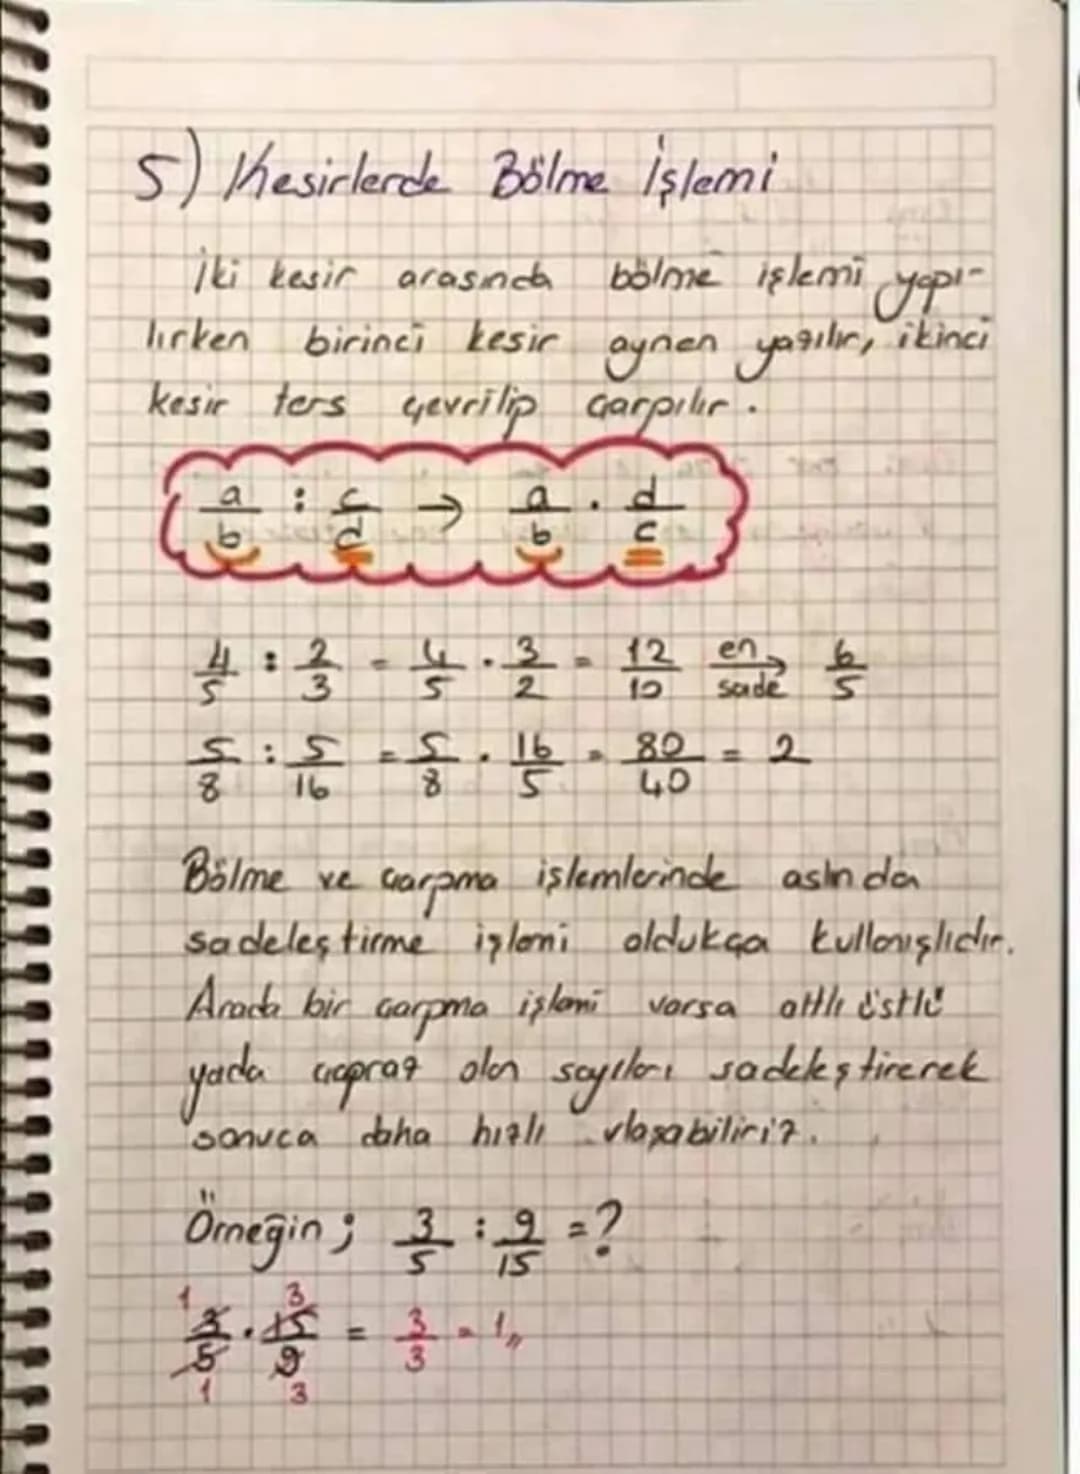 5) Kesirlerde Bölme İşlemi
İki kesir arasında bölme işlemi yapı-
lırken birinci kesir aynen yazılır, ikinci
kesir ters çevrilip çarpılır.
a/b : c/d → a/b . d/c
4/5 : 2/3 = 4/5 . 3/2 = 12/10 en sade → 6/5
5/8 : 5/16 = 5/8 . 16/5 = 80/40 = 2
Bölme ve çarpma işlemlerinde aslında
sadeleştirme işlemi oldukça kullanışlıdır.
Arada bir çarpma işlemi varsa altlı üstlü
yada çapraz olan sayıları sadeleştirerek
sonuca daha hızlı ulaşabiliriz.
Örneğin ; 3/5 : 9/15 = ?
1 3
3/5 . 15/9 = 3/3 = 1,,
1 3